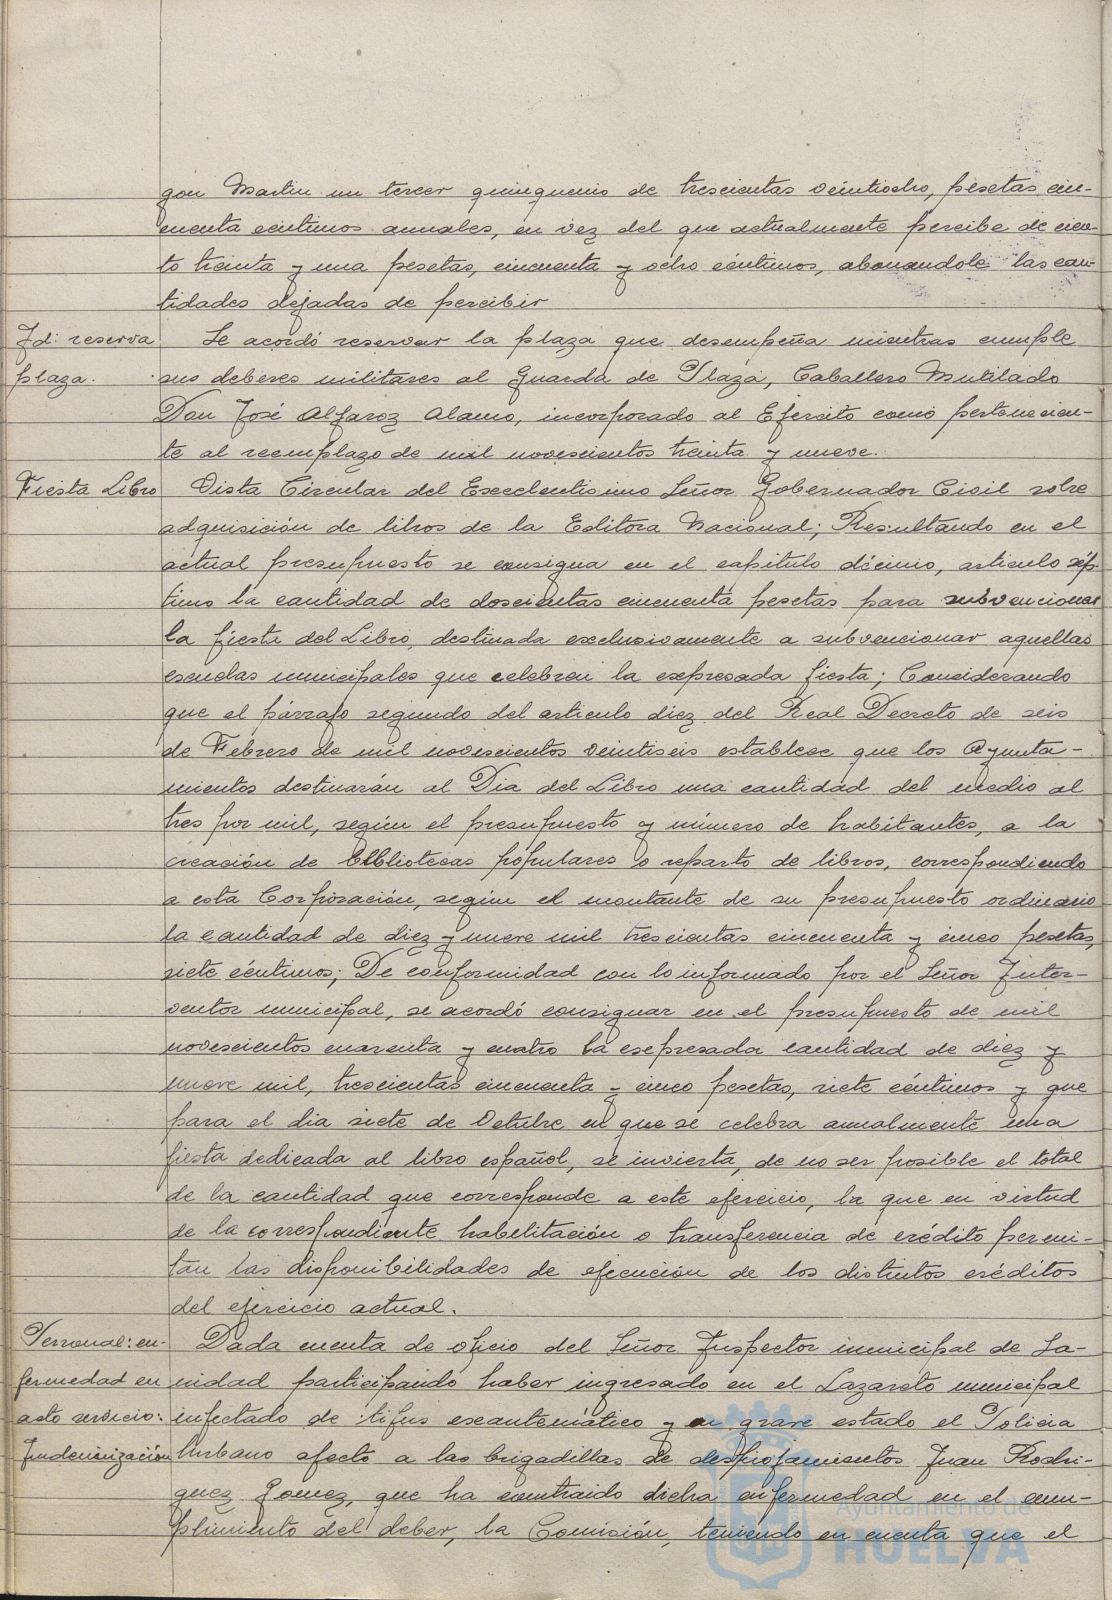 gon Martin un tercer quinquenio de trescientas veintiocho, pesetas cin-
cuenta centimos anuales, en vez del que actualmente percibe de cien-
to treinta y una pesetas, cincuenta y ocho céntimos, abonandole las can-
tidades dejadas de percibir
Id: reserva
plaza.
Se acordó reservar la plaza que desempeña mientras cumple
sus deberes militares al Guarda de Plaza, Caballero Mutilado
Don José Alfaroz Alamo, incorporado al Ejercito como pertenecien-
te al reemplazo de mil novescientos treinta y nueve.
Fiesta Libro
Vista Circular del Execlentisimo Señor Gobernador Civil sobre
adquisición de libros de la Editora Nacional; Resultando en el
actual presupuesto se consigna en el capitulo décimo, articulo sép-
timo la cantidad de doscientas cincuenta pesetas para subvencionar
la fiesta del Libro, destinada exclusivamente a subvencionar aquellas
escuelas municipales que celebren la expresada fiesta; Considerando
que el párrafo segundo del articulo diez del Real Decreto de seis
de Febrero de mil novescientos veintiseis establece que los Ayunta-
mientos destinarán al Dia del Libro una cantidad del medio al
tres por mil, según el presupuesto y número de habitantes, a la
creación de bibliotecas populares o reparto de libros, correspondiendo
a esta Corporación, según el montante de su presupuesto ordinario
la cantidad de diez y nueve mil trescientas cincuenta y cinco pesetas,
siete céntimos; De conformidad con lo informado por el Señor Inter-
ventor municipal, se acordó consignar en el presupuesto de mil
novescientos cuarenta y cuatro la expresada cantidad de diez y
nueve mil, trescientas cincuenta y cinco pesetas, siete céntimos y que
para el dia siete de Octubre en que se celebra anualmente una
fiesta dedicada al libro español, se invierta, de no ser posible el total
de la cantidad que corresponde a este ejercicio, la que en virtud
de la correspondiente habilitación o transferencia de crédito permi-
tan las disponibilidades de ejecución de los distintos créditos
del ejercicio actual.
Personal: en-
fermedad en
acto servicio:
Indemnización
Dada cuenta de oficio del Señor Inspector municipal de Sa-
nidad participando haber ingresado en el Lazareto municipal
infectado de tifus exantemático y en grave estado el Policia
Urbano afecto a las brigadillas de despiojamientos Juan Rodri-
guez Gomez, que ha contraido dicha enfermedad en el cum-
plimiento del deber, la Comisión, teniendo en cuenta que el
Ayuntamiento de
HUELVA